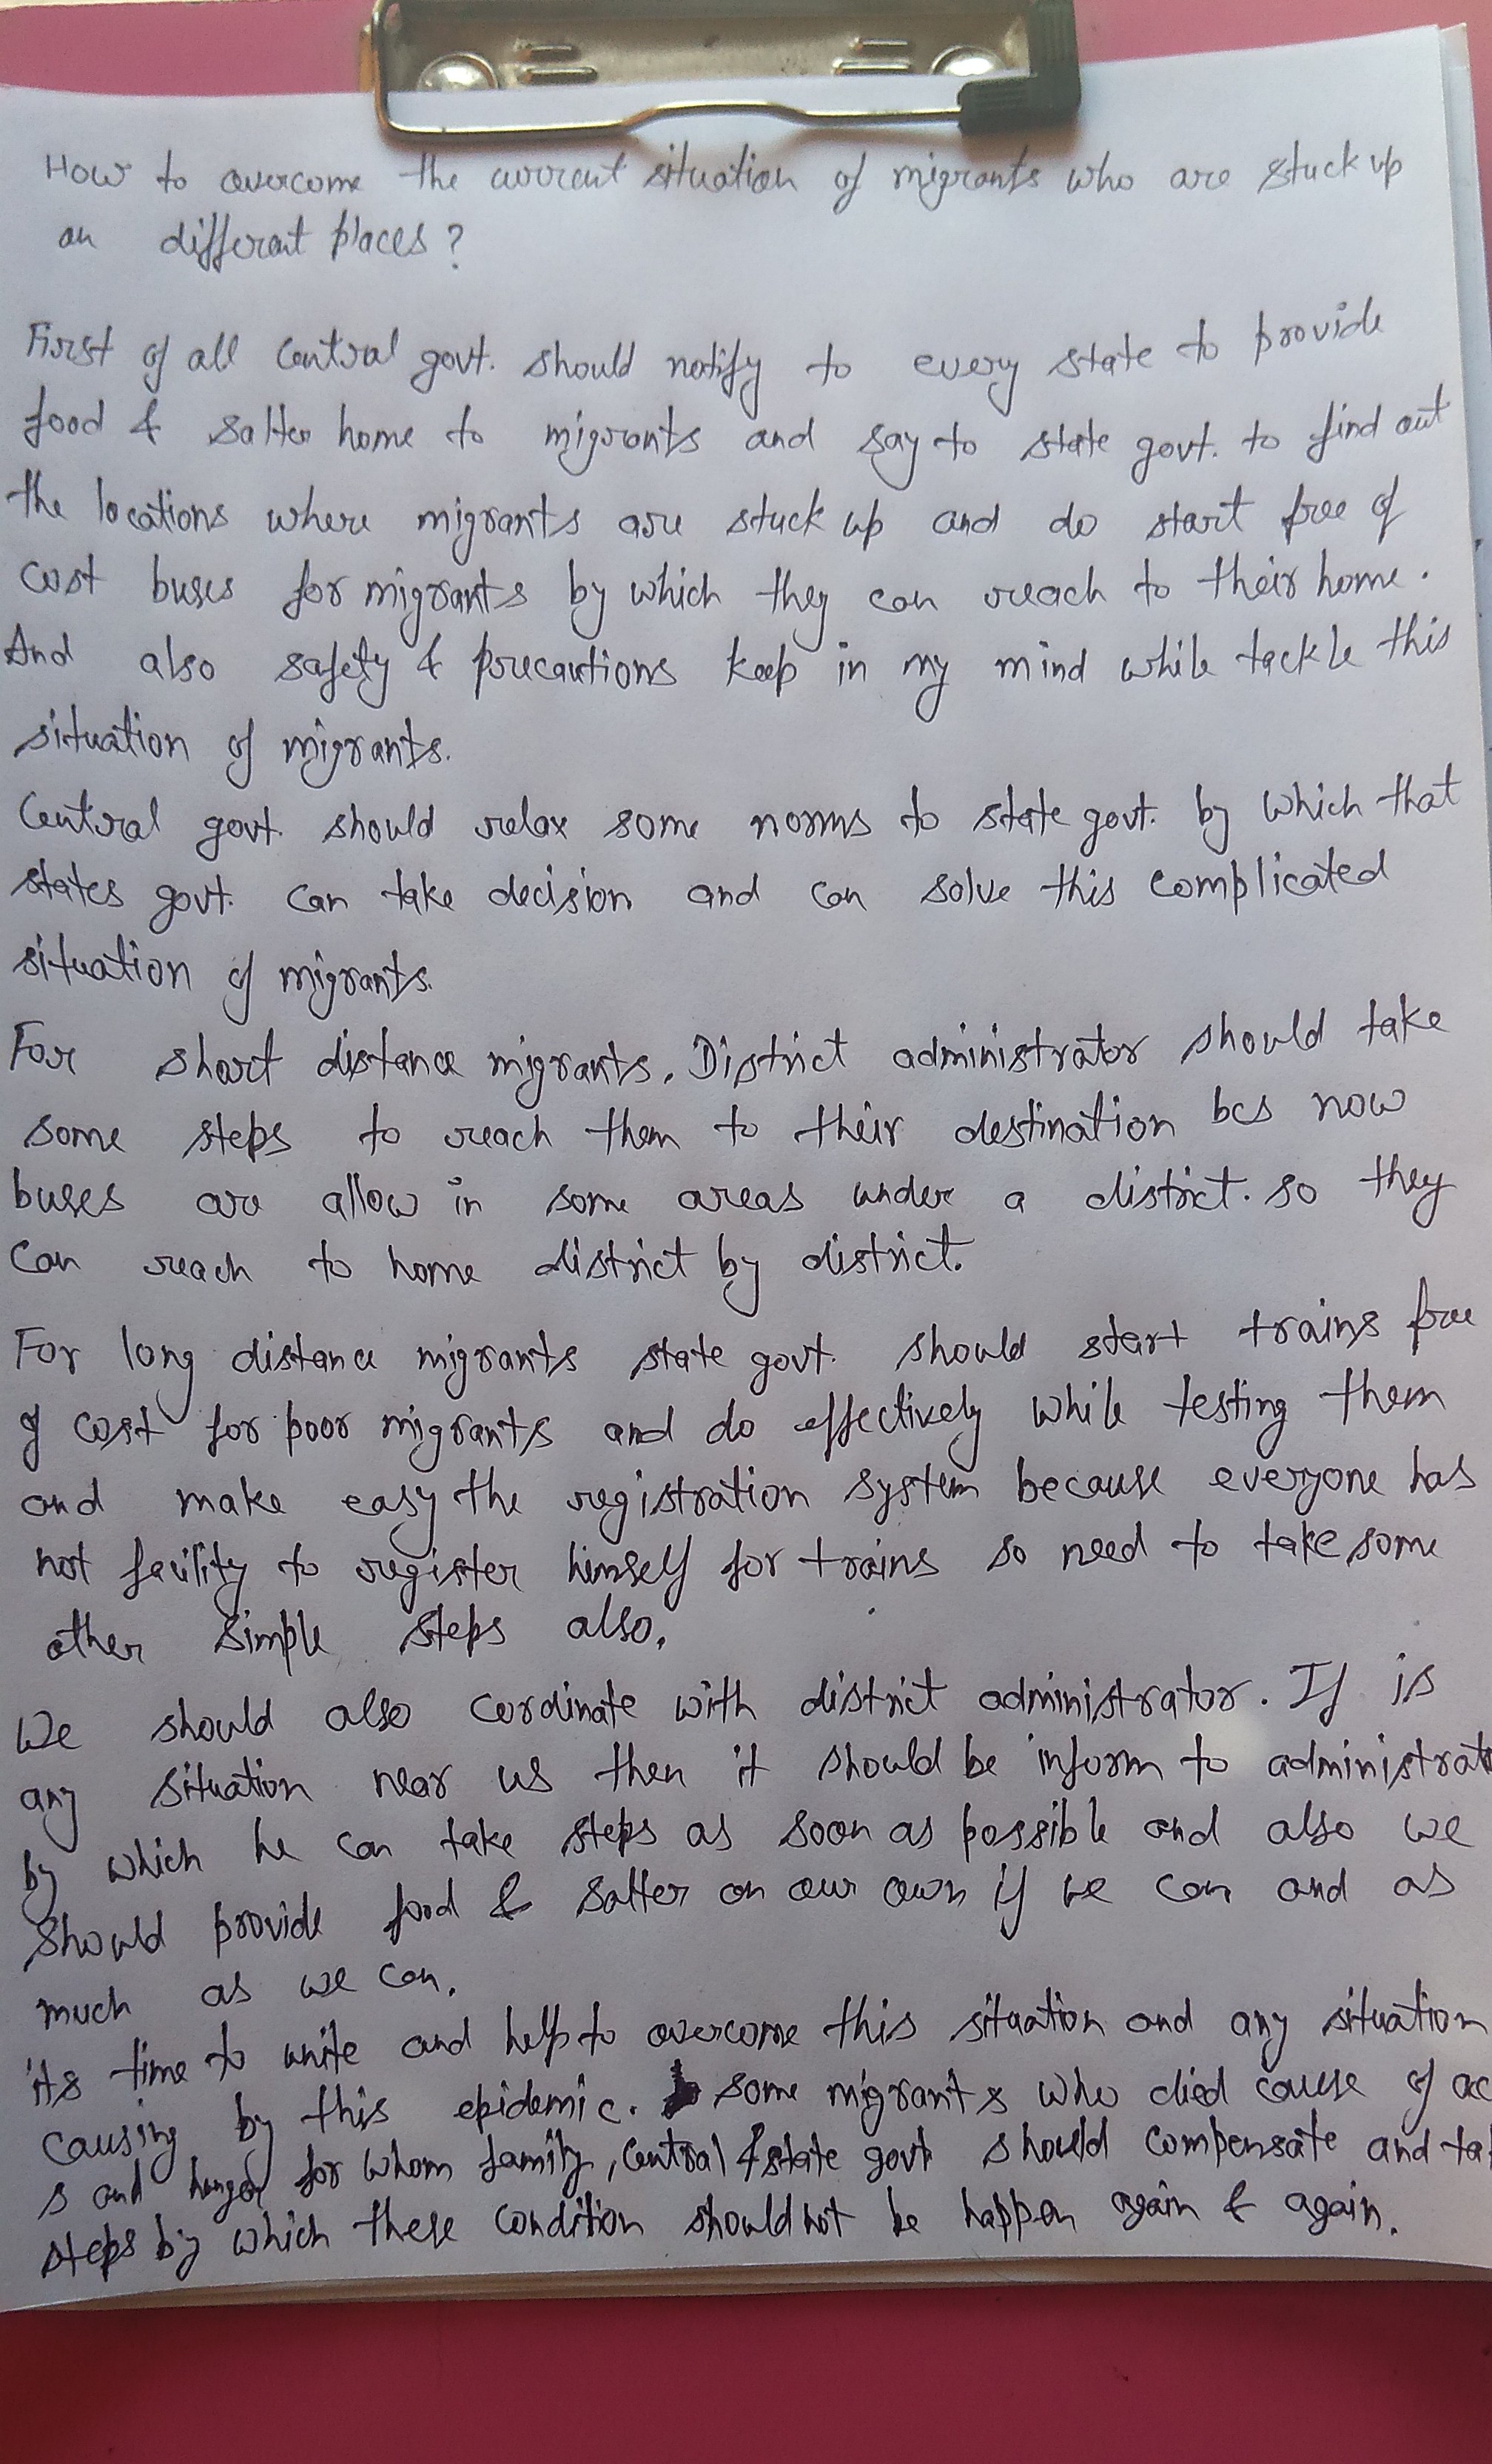 How to overcome the current situation of migrants who are stuck up
on different places?
First of all Central govt. should notify to every state to provide
food & salter home to migrants and say to state govt. to find out
the locations where migrants are stuck up and do start free of
cost buses for migrants by which they can reach to their home.
And also safety & precautions keep in my mind while tackle this
situation of migrants.
Central govt. should relax some norms to state govt. by which that
states govt. can take decision and can solve this complicated
situation of migrants.
For short distance migrants. District administrator should take
some steps to reach them to their destination bcs now
buses are allow in some areas under a district. so they
can reach to home district by district.
For long distance migrants state govt. should start trains free
of cost for poor migrants and do effectively while testing them
and make easy the registration system because everyone has
not facility to register himself for trains so need to take some
other simple steps also.
We should also cordinate with district administrator. If is
any situation near us then it should be inform to administrat
by which he can take steps as soon as possible and also we
should provide food & salter on our own if we can and as
much as we can.
its time to unite and help to overcome this situation and any situation
causing by this epidemic. some migrants who died cause of ac
s and hunger for whom family, Central & state govt should compensate and ta
steps by which these condition should not be happen again & again.